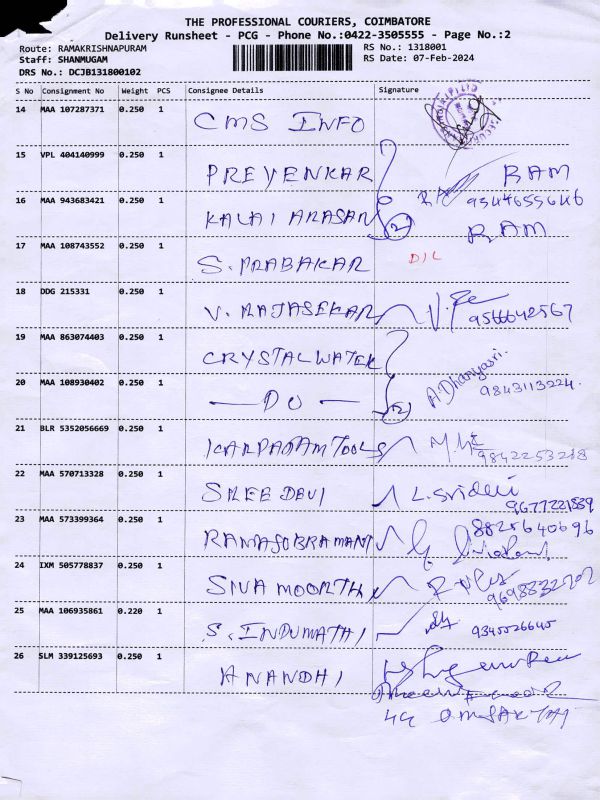 THE PROFESSIONAL COURIERS, COIMBATORE
Delivery Runsheet - PCG - Phone No.:0422-3505555 - Page No.:2
Route: RAMAKRISHNAPURAM RS No.: 1318001
Staff: SHANMUGAM RS Date: 07-Feb-2024
DRS No.: DCJB131800102
S No Consignment No Weight PCS Consignee Details Signature
14 MAA 107287371 0.250 1 CMS INFO
15 VPL 404140999 0.250 1 PREYENKAR RAM
16 MAA 943683421 0.250 1 KALAI ARASAN (2) RAM
17 MAA 108743552 0.250 1 S. PRABAKAR D/L
18 DDG 215331 0.250 1 V. RAJASEKAR 9566642567
19 MAA 863074403 0.250 1 CRYSTAL WATER
20 MAA 108930402 0.250 1 — DO — (2) A. Dhanyasri. 9843113224.
21 BLR 5352056669 0.250 1 KARPAGAM TOOLS 9842253218
22 MAA 570713328 0.250 1 SREE DEVI L. Sridevi 9677221839
23 MAA 573399364 0.250 1 RAMASUBRAMANI 8825640696
24 IXM 505778837 0.250 1 SIVA MOORTHY
25 MAA 106935861 0.220 1 S. INDUMATHI 9345526645
26 SLM 339125693 0.250 1 ANANDHI
OMSAKTHI